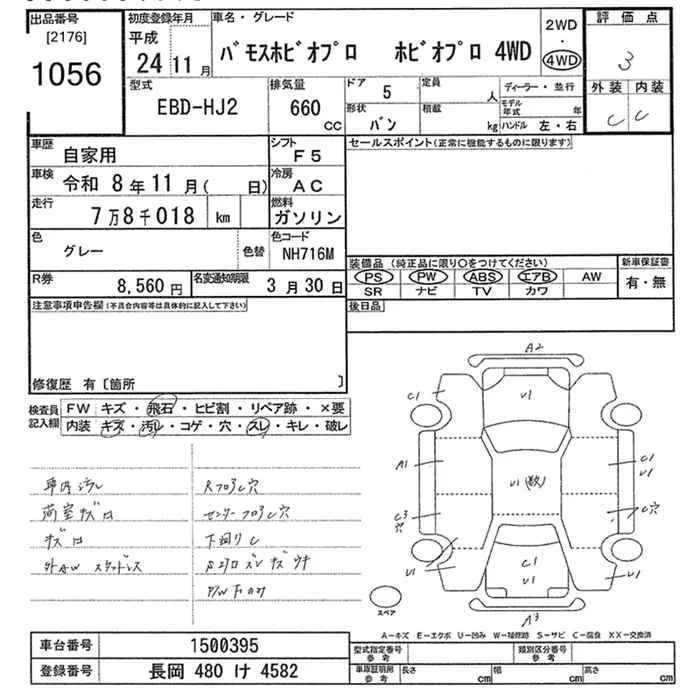 出品番号
[2176]
1056
初度登録年月
平成
24 11 月
車名・グレード
バモスホビオプロ ホビオプロ 4WD
2WD
・
4WD
評価点
3
外装 内装
C C
型式
EBD-HJ2
排気量
660
cc
ドア
5
定員
人
形状
バン
積載
kg
ディーラー・並行
モデル年式 年
ハンドル 左・右
車歴
自家用
シフト
F5
車検
令和 8年 11月( 日)
冷房
AC
走行
7万8千018 km
燃料
ガソリン
色
グレー
色替
色コード
NH716M
R券
8,560円
名変通知期限
3月30日
セールスポイント(正常に機能するものに限ります)
装備品(純正品に限り○をつけてください)
PS PW ABS エアB AW
SR ナビ TV カワ
新車保証書
有・無
後日品
注意事項申告欄(不具合内容等は具体的に記入して下さい)
修復歴 有〔箇所 〕
検査員記入欄
FW キズ・飛石・ヒビ割・リペア跡・×要
内装 キズ・汚レ・コゲ・穴・スレ・キレ・破レ
車内汚レ
荷室キズ凹
キズ凹
外AW スタッドレス
RフロアC穴
センターフロアC穴
下回りC
A2
C1
V1
A1
C1
V1
V1(数)
C3
穴
C穴
V1
C1
V1
V1
A3
スペア
A-キズ E-エクボ U-凹み W-補修跡 S-サビ C-腐食 XX-交換済
車台番号
1500395
登録番号
長岡 480 け 4582
型式指定番号
参考
類別区分番号
参考
車庫証明用
参考
長さ cm
幅 cm
高さ cm